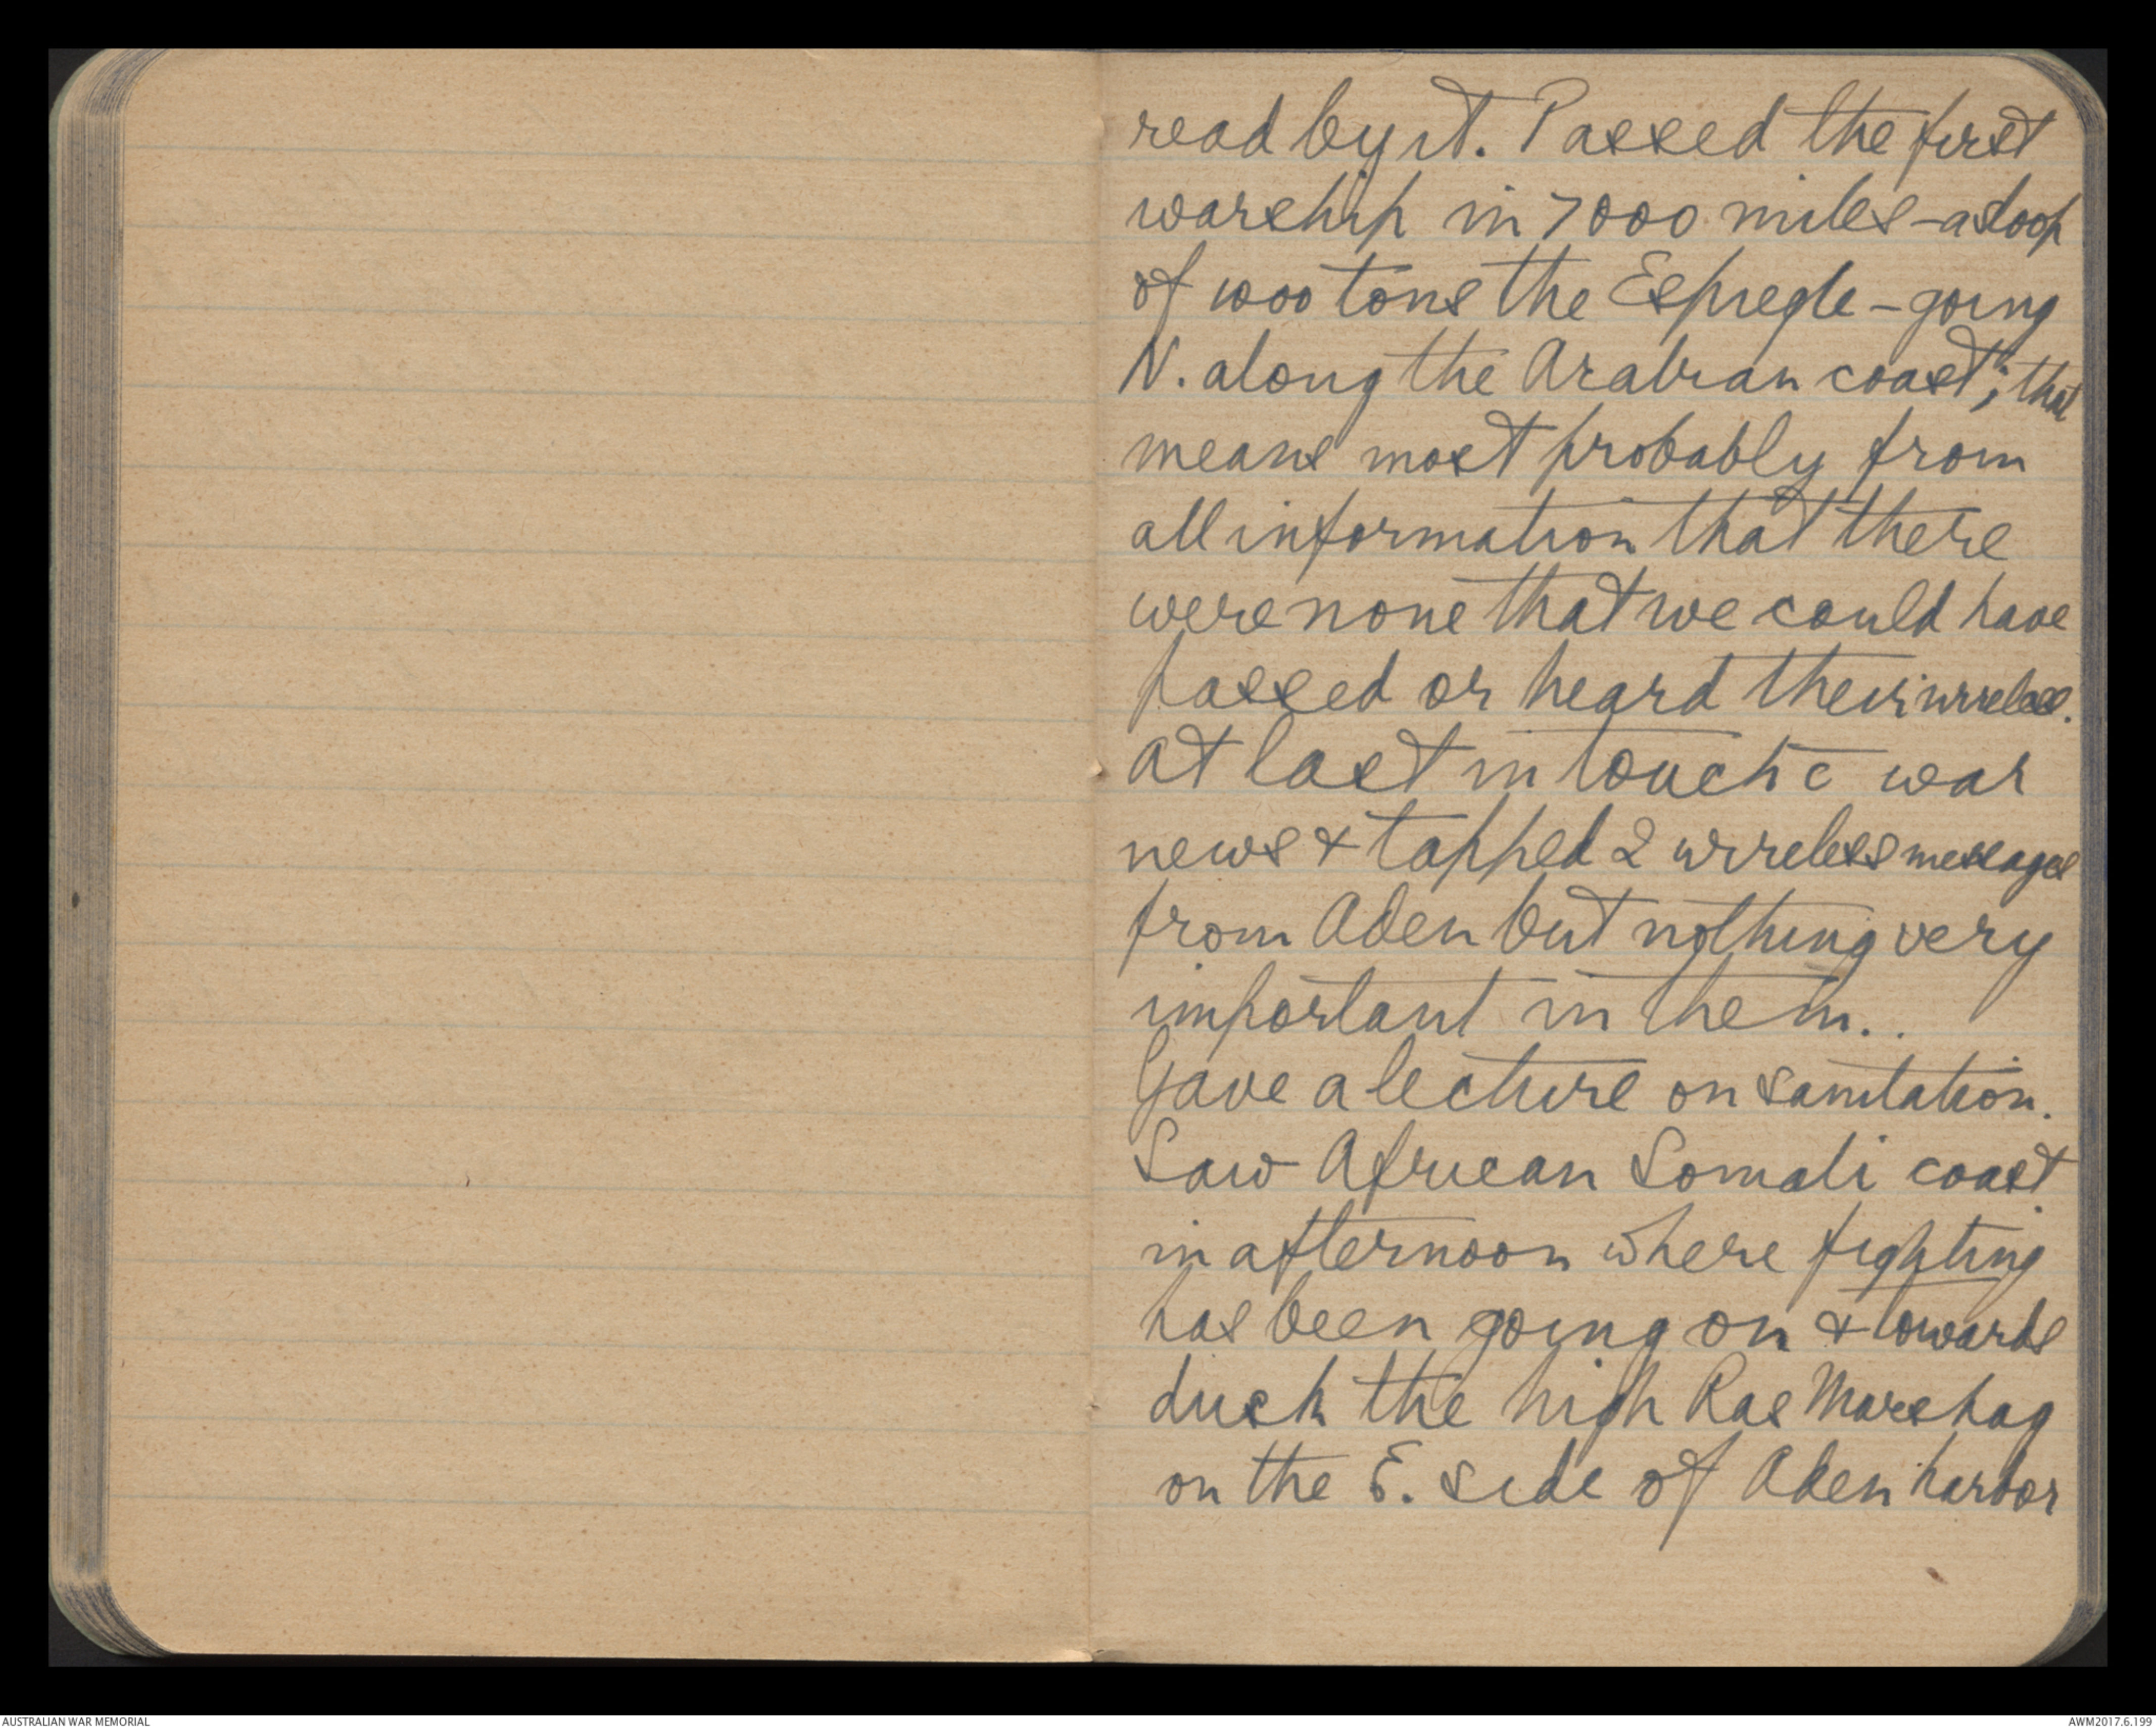 read by it. Passed the first
warship in 7000 miles - a sloop
of 1000 tons the Espiegle - going
N. along the Arabian coast; that
means most probably from
all information that there
were none that we could have
passed or heard their wireless.
At last in touch c war
news & tapped 2 wireless messages
from Aden but nothing very
important in them..
Gave a lecture on sanitation.
Saw African Somali coast
in afternoon where fighting
has been going on & towards
dusk the high Ras Marshag
on the E. side of Aden harbor
AUSTRALIAN WAR MEMORIAL
AWM2017.6.199